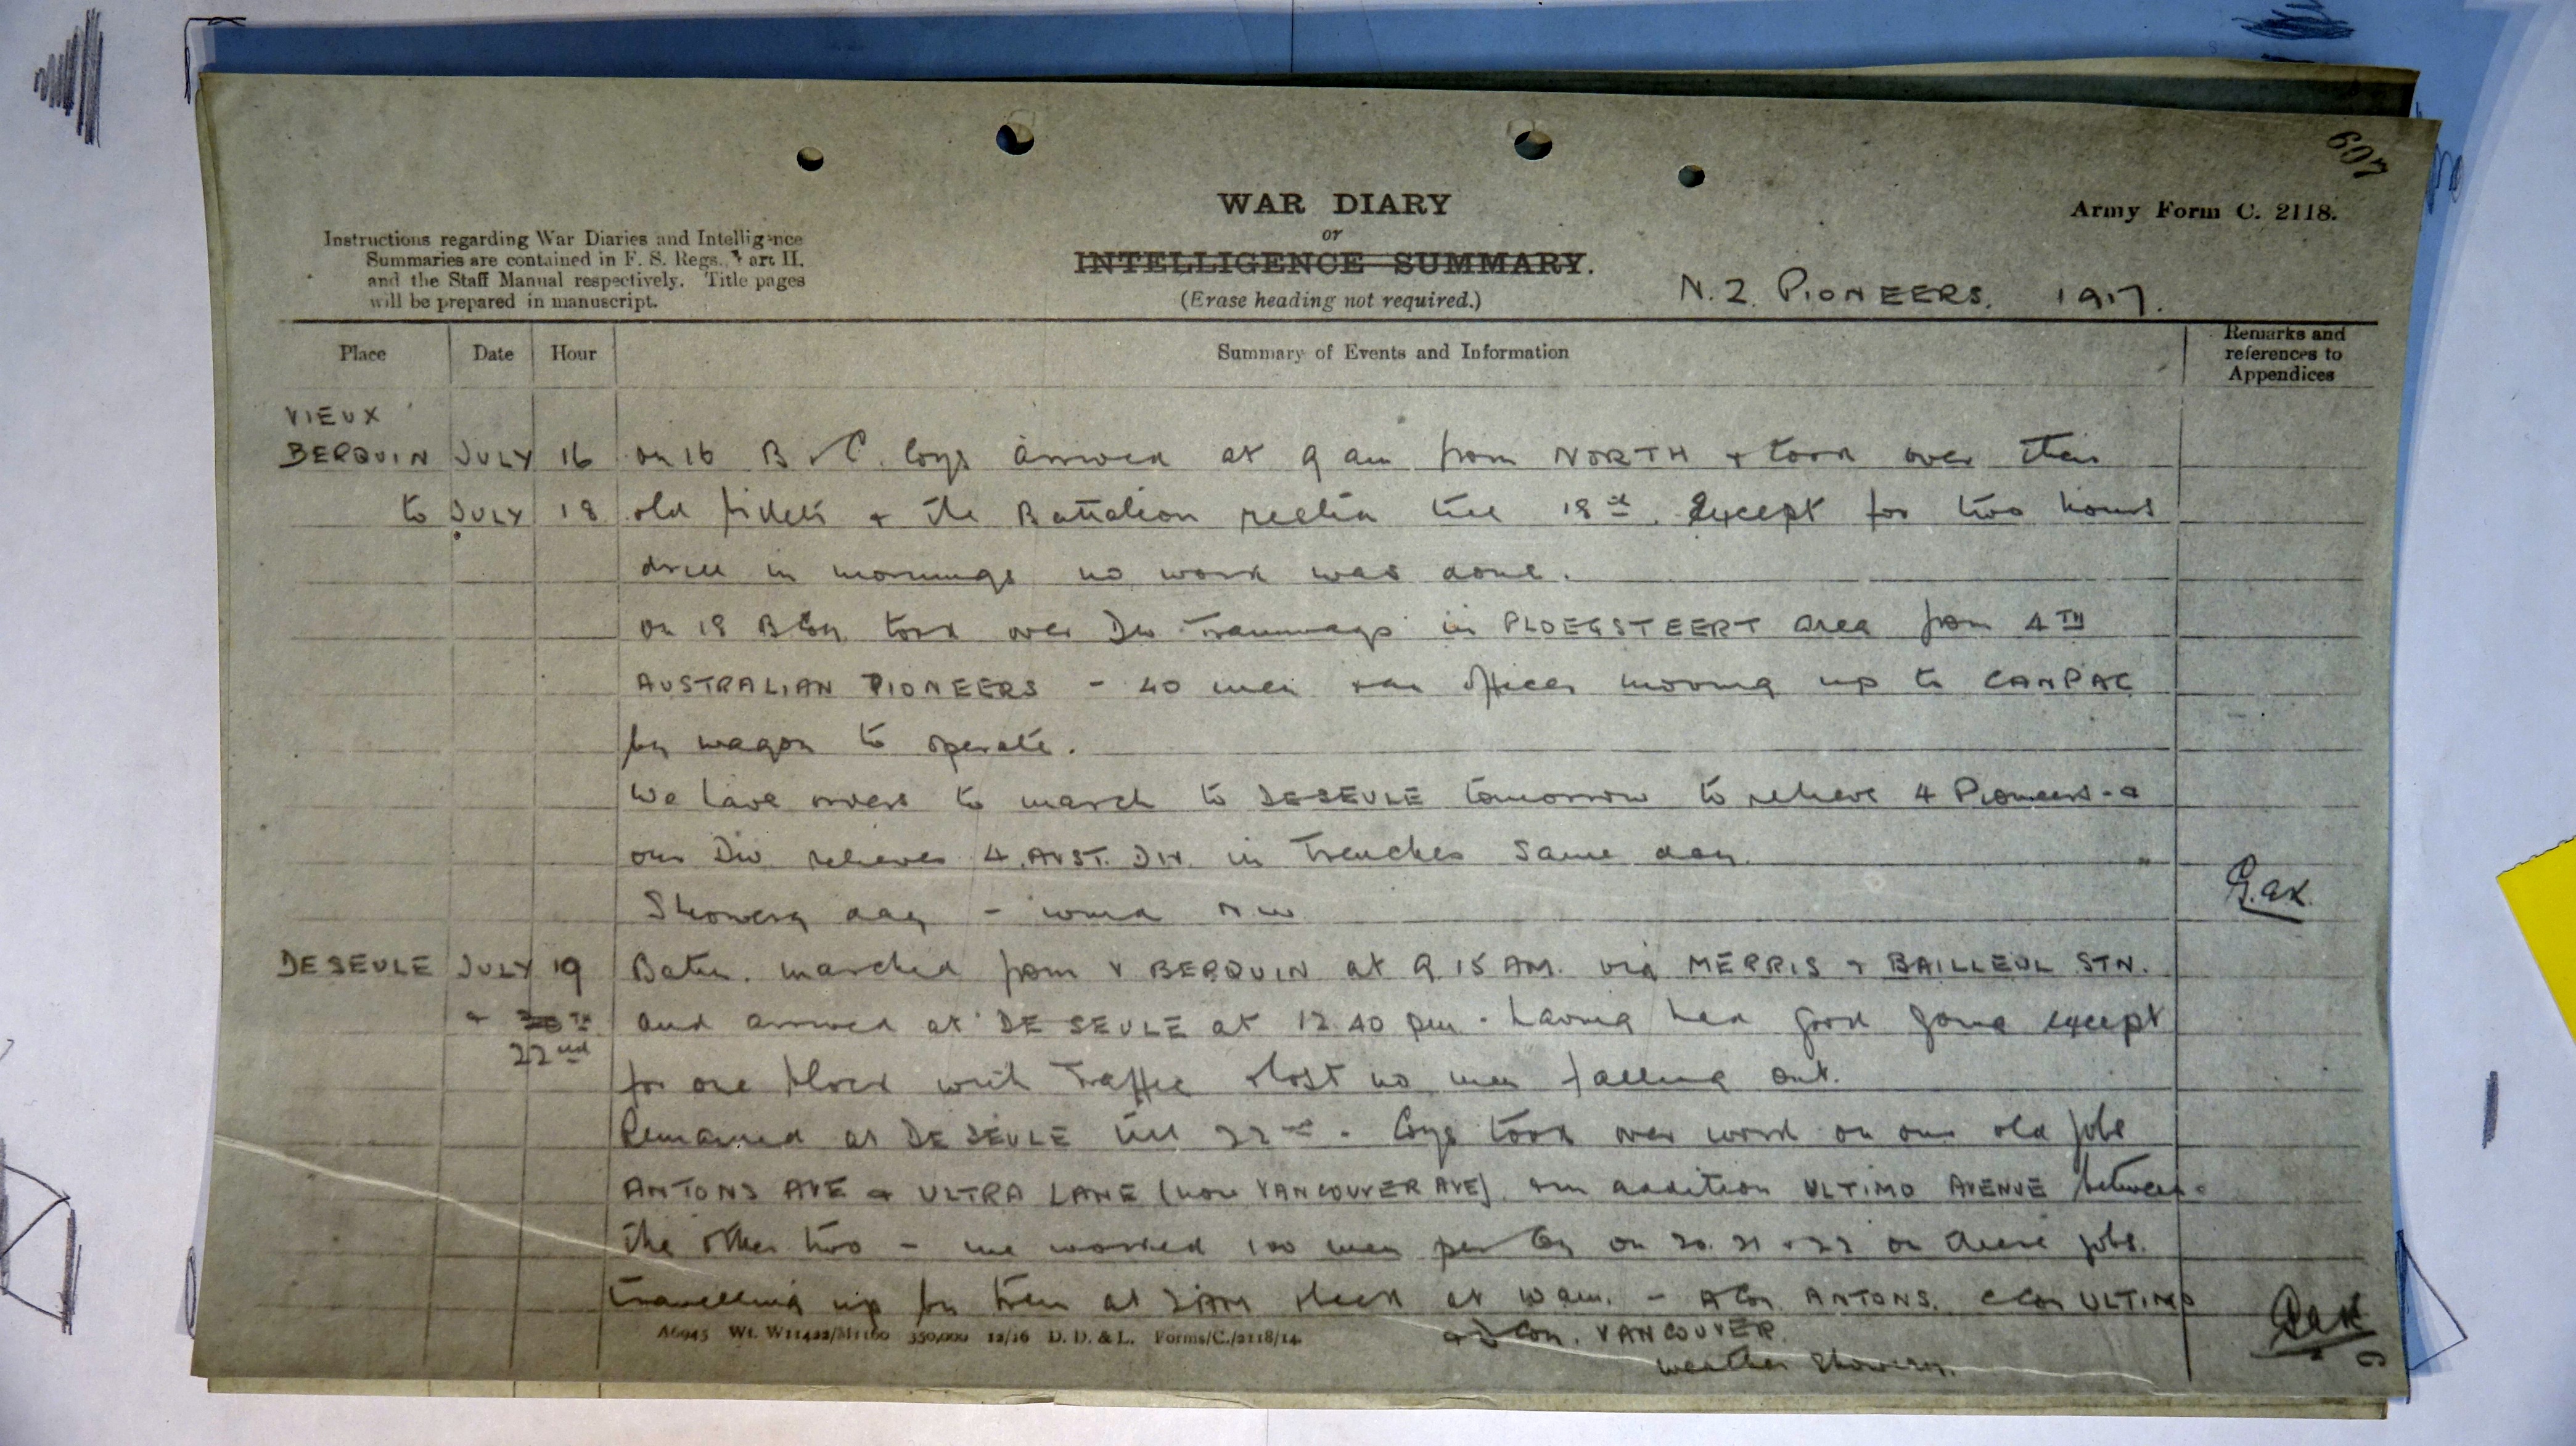 607
WAR DIARY
or
INTELLIGENCE SUMMARY.
(Erase heading not required.)
Army Form C. 2118.
Instructions regarding War Diaries and Intelligence
Summaries are contained in F. S. Regs., Part II.
and the Staff Manual respectively. Title pages
will be prepared in manuscript.
N.Z. PIONEERS. 1917.
Place Date Hour Summary of Events and Information Remarks and references to Appendices
VIEUX
BERQUIN JULY 16 on 16 B & C. Coys arrived at 9 am from NORTH & took over their
to JULY 18 old billets & the Battalion rested till 18th. Except for two hours
drill in mornings no work was done.
On 18 B Coy took over Div Tramways in PLOEGSTEERT area from 4TH
AUSTRALIAN PIONEERS - 40 men & an officer moving up to CANPAC
by wagon to operate.
We have orders to march to DESEULE tomorrow to relieve 4 Pioneers - &
our Div relieves 4 AUST. DIV. in Trenches same day.
Showery day - wind NW
DE SEULE JULY 19 Batn. marched from V BERQUIN at 9 15 AM. via MERRIS & BAILLEUL STN.
& 20TH and arrived at DE SEULE at 12.40 pm - having had good going except
22nd
for one block with Traffic & lost no men falling out.
Remained at DE SEULE till 22nd - Coys took over work on our old jobs
ANTONS AVE & ULTRA LANE (now VANCOUVER AVE) & in addition ULTIMO AVENUE between
the other two - we worked 100 men per Coy on 20. 21 & 22 on these jobs.
travelling up by tram at 2AM & back at 10 am. - A Coy. ANTONS. C Coy ULTIMO
& D Coy. VANCOUVER.
weather showery.
A6945 Wt. W11422/M1160 350,000 12/16 D. D. & L. Forms/C./2118/14.